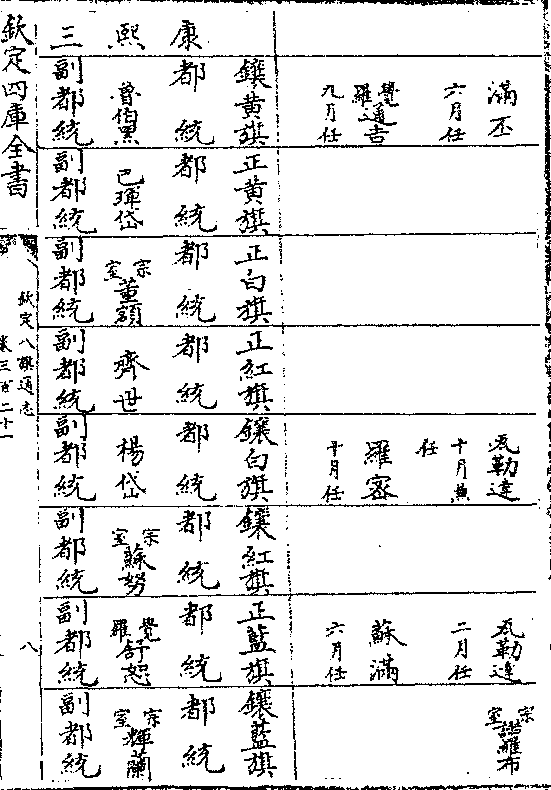 滿丕 瓦勒達 瓦勒達 宗室諾羅布
六月任 十月兼任 二月任
覺羅通吉 羅密 蘇滿
九月任 十月任 六月任
鑲黃旗 正黃旗 正白旗 正紅旗 鑲白旗 鑲紅旗 正藍旗 鑲藍旗
康 都統 都統 都統 都統 都統 都統 都統 都統
熙 魯伯黑 巴琿岱 宗室董額 齊世 楊岱 宗室蘇努 覺羅舒恕 宗室輝蘭
三 副都統 副都統 副都統 副都統 副都統 副都統 副都統 副都統
欽定四庫全書
欽定八旗通志
卷三百二十一
八